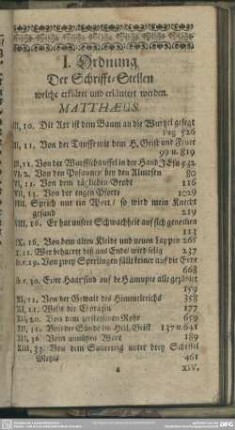 I. Ordnung
Der Schrifft-Stellen
welche erkläret und erläutert werden.
MATTHÆUS.
III, 10. Die Axt ist dem Baum an die Wurtzel gelegt
pag 526
III, 11. Von der Tauffe mit dem H. Geist und Feuer
99 u. 819
III, 12. Von der Worffschauffel in der Hand JEsu 542
VI, 2. Von der Posaunen bey den Almosen 80
VI, 11. Von dem täglichen Brodt 116
VII, 13. Von der engen Pforte 1029
VIII. Sprich nur ein Wort / so wird mein Knecht
gesund 219
VIII. 16. Er hat unsere Schwachheit auf sich genommen
113
IX. 16. Von dem alten Kleide und neuen Lappen 265
X. Wer beharret biß ans Ende wird selig 237
h.c. 29. Von zwey Sperlingen fällt keiner auf die Erde
668
h.c. 30. Eure Haar sind auf dem Haupte alle gezählet
159
XI, 12. Von der Gewalt des Himmelreichs 358
XI, 21. Wehe dir Chorazin 177
XII, 20. Von dem zerstossenen Rohr 659
XII, 31. Von der Sünde im Heil. Geist 137 u. 641
XII, 36. Vom unnützen Wort 189
XIII, 33. Von dem Sauerteig unter drey Scheffel
Mehls 461
XIV.